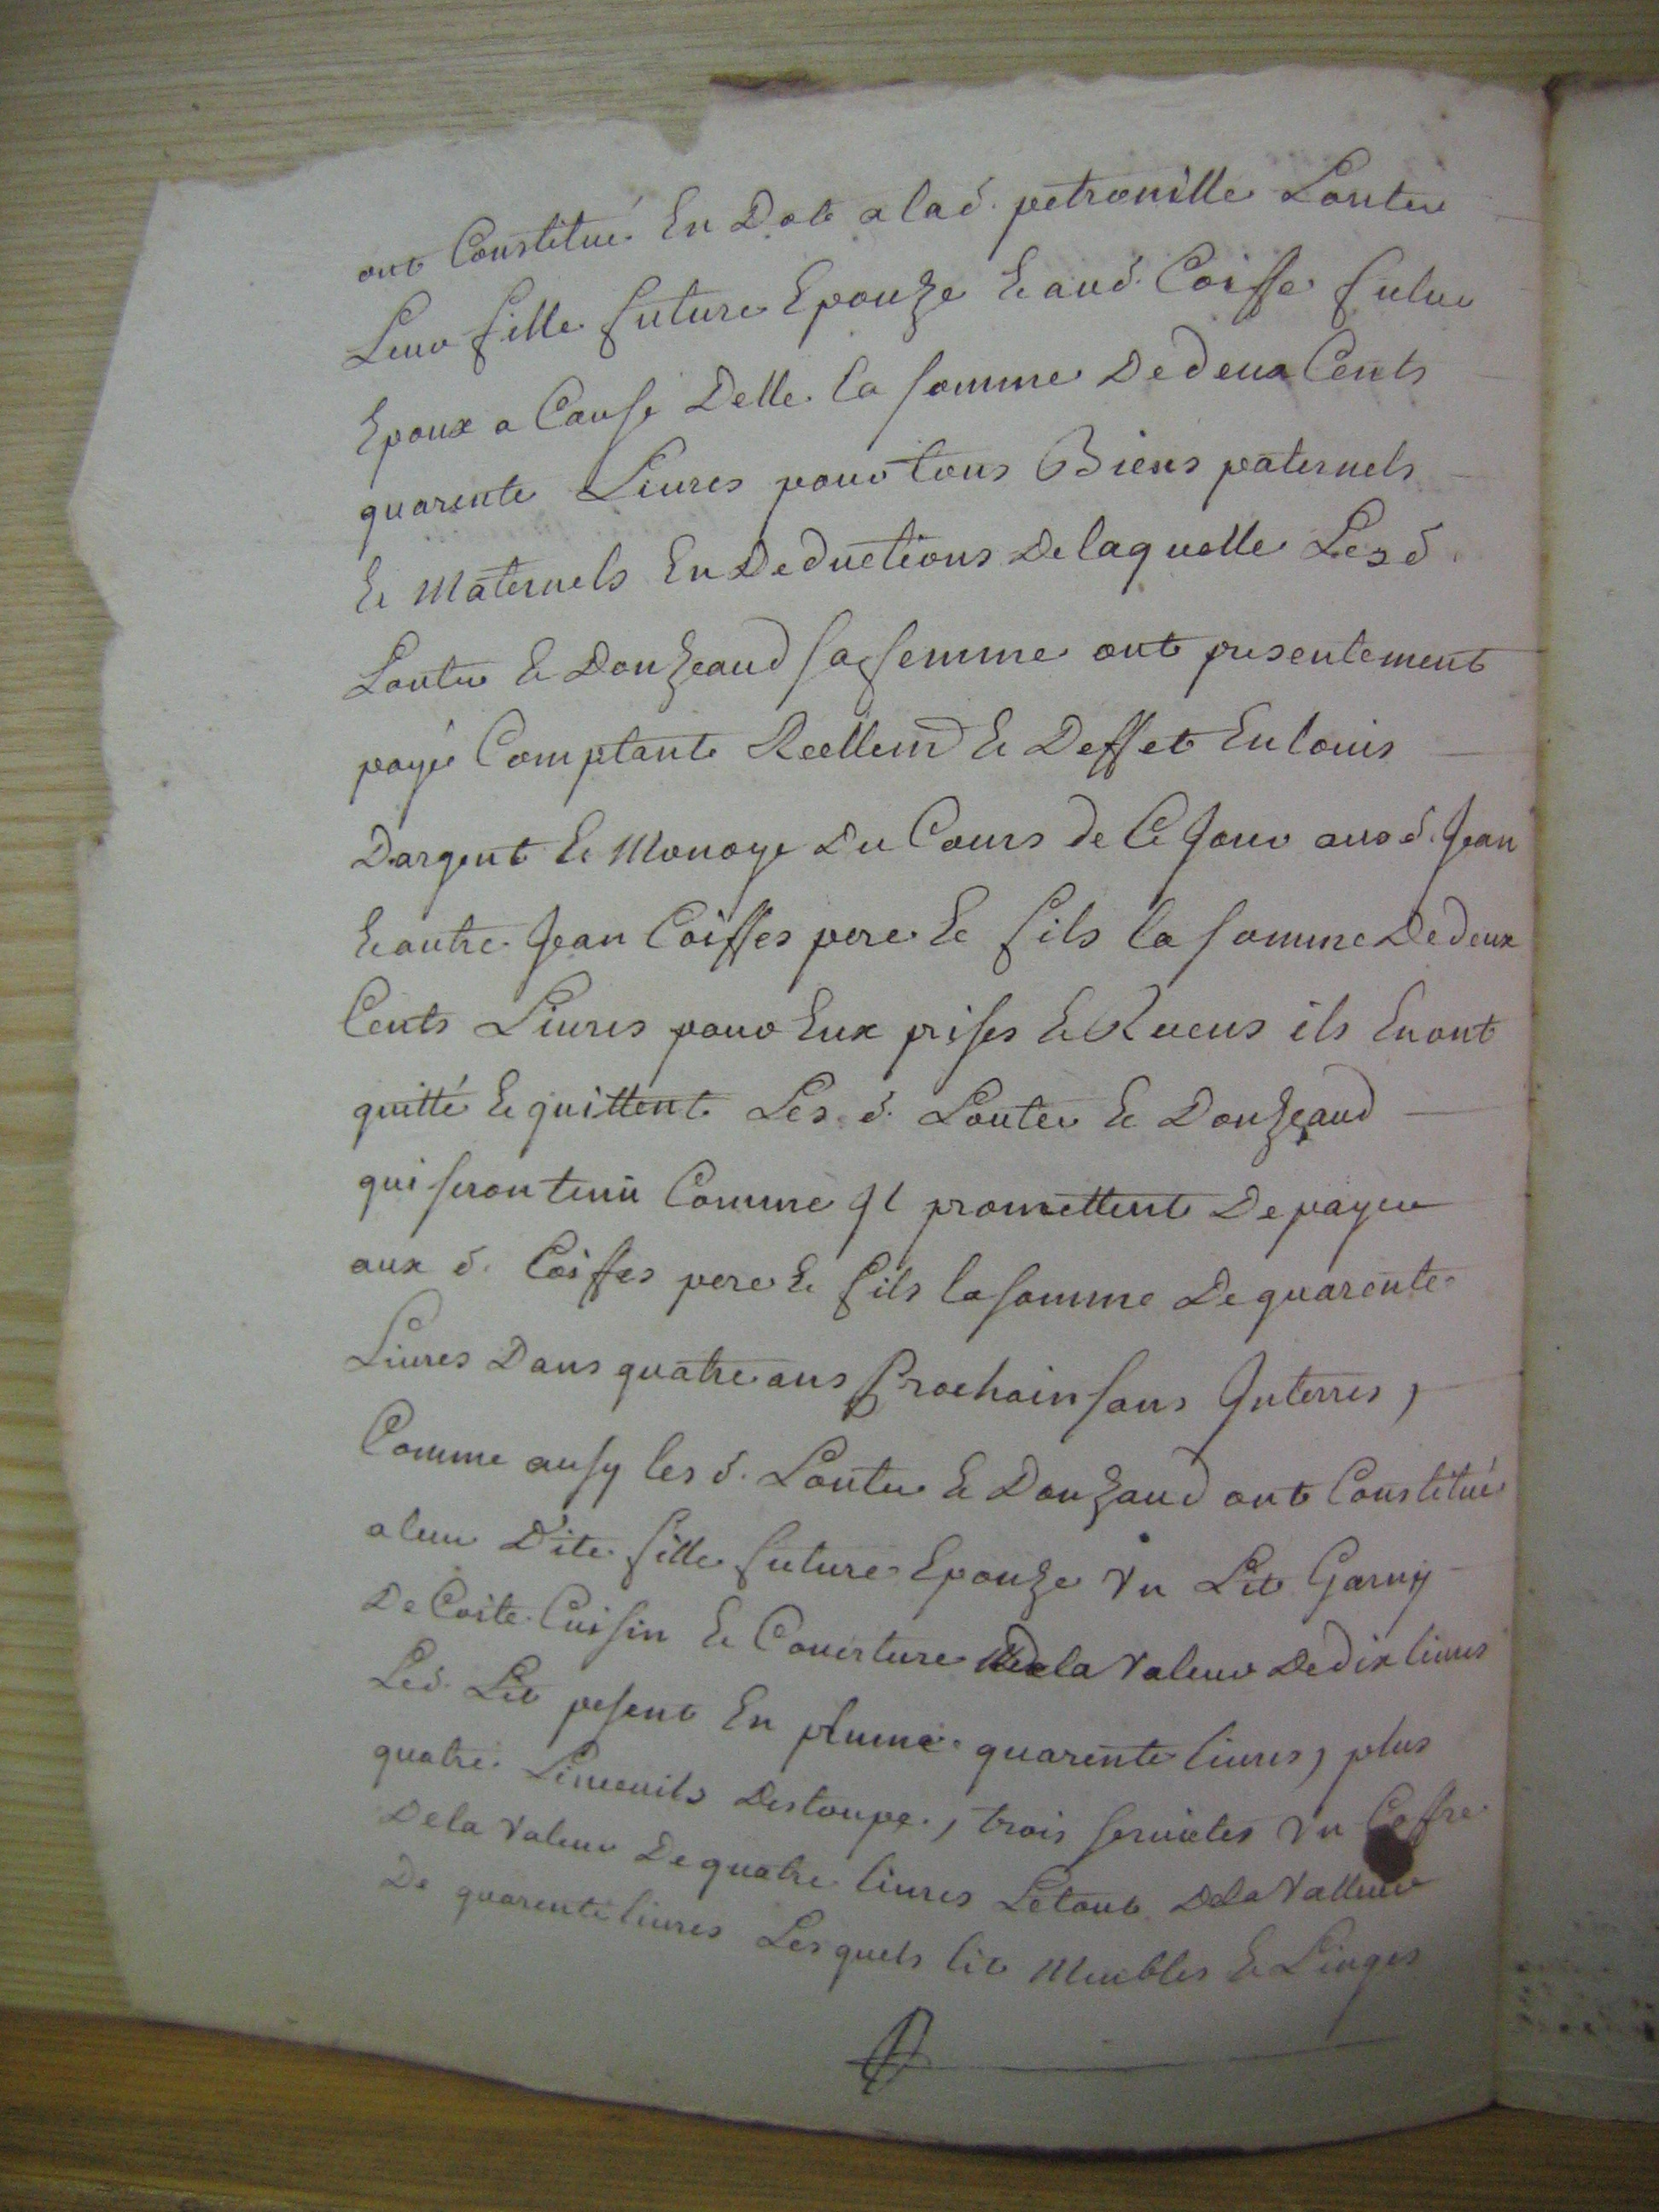 ont Constitué En Dot a lad. petronille Loutre
Leur fille future Epouze Et aud. Coiffe futur
Epoux a Cause Delle la somme de deux Cents
quarente Livres pour tous Biens paternels
Et Maternels En Deductions de laquelle Lesd.
Loutre Et Donzeaud sa femme ont presentement
payé Comptant Reellem̅ Et Deffet En louis
Dargent Et Monoye du Cours de Ce Jour ausd. Jean
Et autre Jean Coiffes pere Et fils la somme de deux
Cents Livres pour Eux prises Et Receus ils En ont
quitté Et quittent Les d. Loutre Et Donzeaud
qui seront tenu Comme Jl promettent De payer
aux d. Coiffes pere Et fils la somme de quarente
Livres Dans quatre ans Prochain sans Interris,
Comme aussy les d. Loutre Et Donzeaud ont Constitué
a leur dite fille future Epouze Vn Lit Garny
de Coite Cuissin Et Couverture de la valeur de dix livres
Led. Lit pesent En plume quarente livres, plus
quatre Linceuils destoupe, trois servietes Vn Coffre
de la valeur de quatre livres Letout de la valleur
de quarente livres Lesquels lit Meubles Et Linges